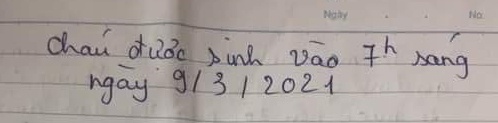 Ngày . . No.
cháu được sinh vào 7h sáng
ngày 9/3/2021